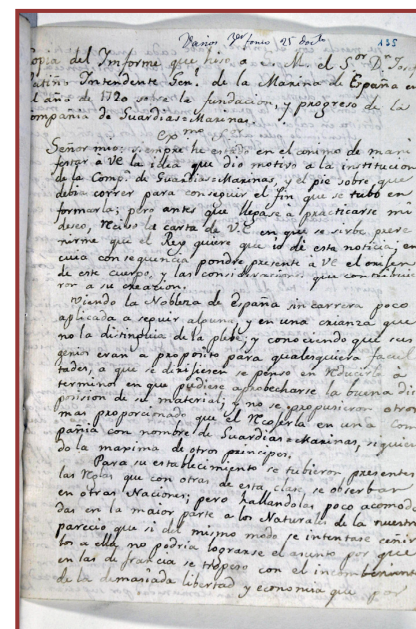 Varios. Yo tomo 25 Docto 135
opia del Informe que hiso a s. M. el Sor. Dn. Jose
atiño Intendente Genl. de la Marina de España en
l año de 1720 sobre la fundacion, y progreso de las
ompañia de Guardias=Marinas.
Exmo. Sor.
Señor mio: siempre he estado en el animo de mani
festar a VE la idea que dio motivo a la institucion
de la Compa. de Guardias=Marinas, y el pie sobre que
debia correr para conseguir el fin que se tubo en
formarla; pero antes que llegase a practicarse mi
deseo, recibo la carta de V.E. en que se sirve preve
nirme que el Rey quiere que yo dé esta noticia, en
cuia consequencia pondre presente a VE el origen
de este cuerpo, y las consideraciones que contribuie
ron a su creacion.
Viendo la Nobleza de España sin carrera poco
aplicada a seguir alguna, y en una crianza que
no la distinguia de la plebe, y conociendo que sus
genios eran a proposito para qualesquiera facul
tades, a que se dirijiesen se penso en reducirla à
terminos en que pudiese aprobecharse la buena dis
posision de su material; y no se propusieron otros
mas proporcionado que el recojerla en una Com
pañia con nombre de Guardias=Marinas, siguien
do la maxima de otros principes.
Para su establecimiento se tubieron presentes
las reglas que con otras de esta clase se observan
en otras Naciones; pero hallandolas poco acomoda
das en la maior parte a los Naturales de la nuestra
parecio que si del mismo modo se intentase ceñir
los a ella no podria lograrse el asunto por que
en las de francia se tropeso con el incombeniente
de la demasiada libertad y economia que por